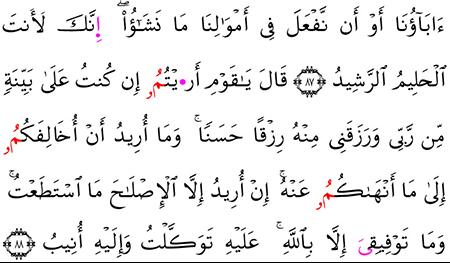 ءَابَآؤُنَا أَوْ أَن نَّفْعَلَ فِي أَمْوَٰلِنَا مَا نَشَٰٓؤُاْۖ إِنَّكَ لَأَنتَ
اَلْحَلِيمُ اُلرَّشِيدُ ۝٨٧ قَالَ يَٰقَوْمِ أَرَ•يْتُمُۥ إِن كُنتُ عَلَىٰ بَيِّنَةٖ
مِّن رَّبِّي وَرَزَقَنِي مِنْهُ رِزْقًا حَسَنًاۚ وَمَا أُرِيدُ أَنْ أُخَالِفَكُمُۥ
إِلَىٰ مَا أَنْهَىٰكُمُۥ عَنْهُۚ إِنْ أُرِيدُ إِلَّا اَلْإِصْلَٰحَ مَا اَسْتَطَعْتُۚ
وَمَا تَوْفِيقِيَ إِلَّا بِاللَّهِۚ عَلَيْهِ تَوَكَّلْتُ وَإِلَيْهِ أُنِيبُ ۝٨٨